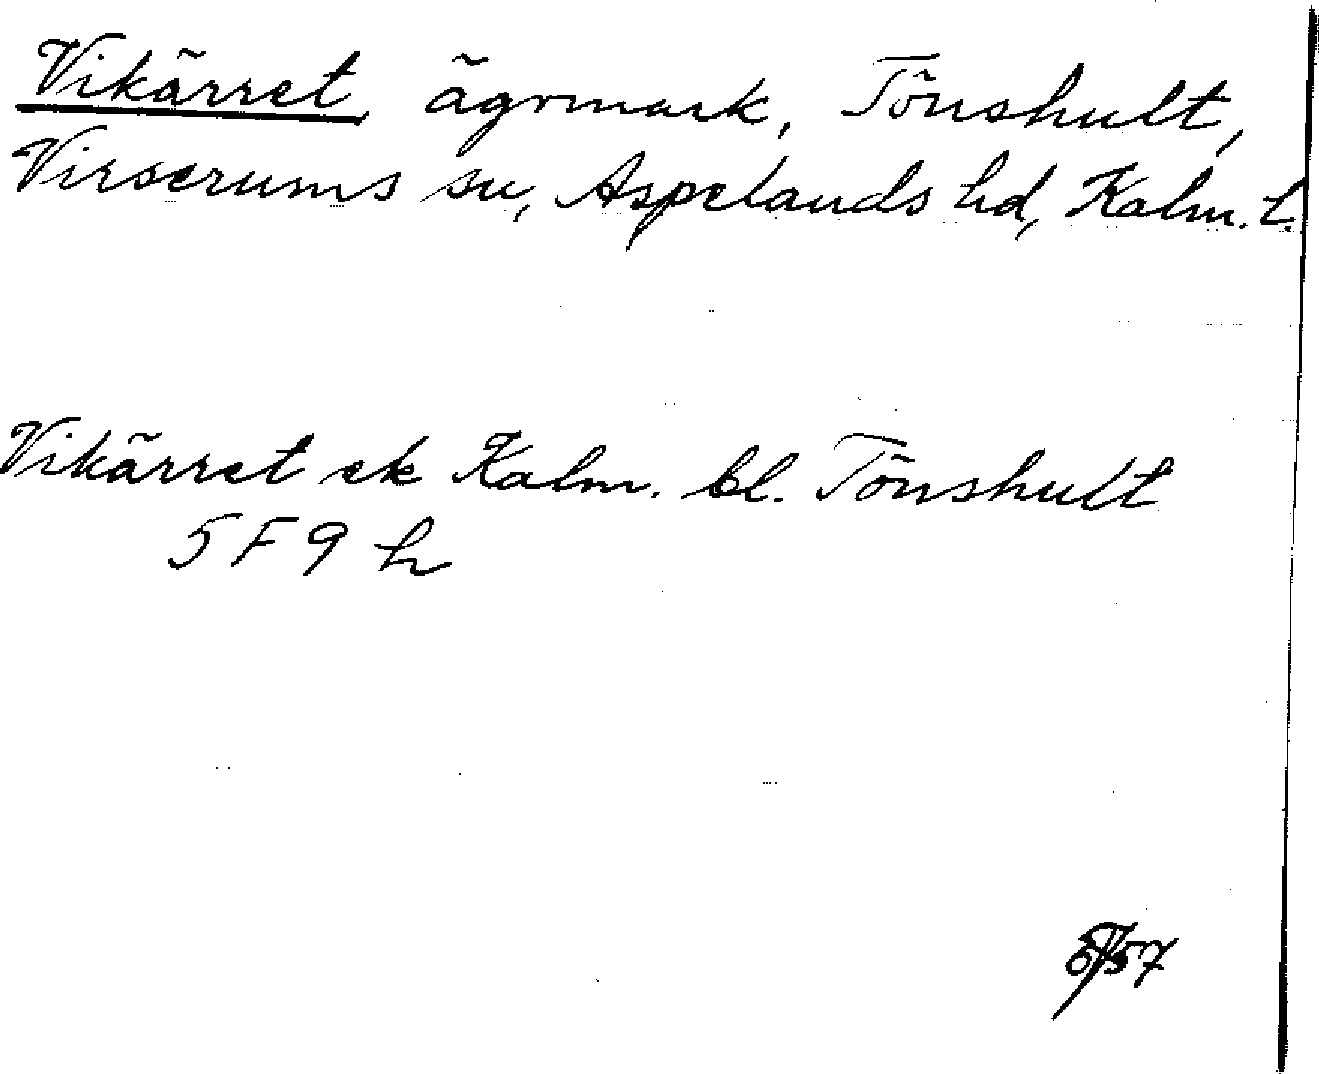 Vikärret, ägomark, Tönshult,
Virserums sn, Aspelands hd, Kalm. l.
Vikärret ek Kalm. bl. Tönshult
5 F 9 h